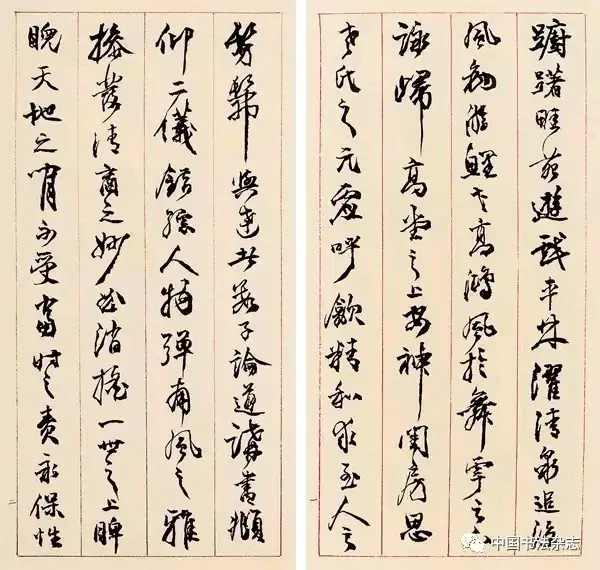 蹰躇畦苑遊戲平林濯清泉追涼
風釣游鯉弋高鴻風於舞雩之下
詠歸高堂之上安神閨房思
老氏之元虛呼歙精和求至人之
髣髴與達者數子論道講書頫
仰二儀錯綜人物彈南風之雅
操發清商之妙曲逍搖一世之上睥
睨天地之間不受當時之責永保性
二
中国书法杂志